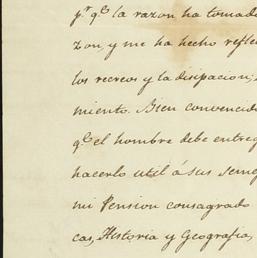 pr. qe. la razon ha tomado
zon, y me ha hecho refle
los recreos y la disipacion,
miento. Bien convencid
qe. el hombre debe entreg
hacerlo util á sus seme
mi Pension consagrado
cas, Historia y Geografia,